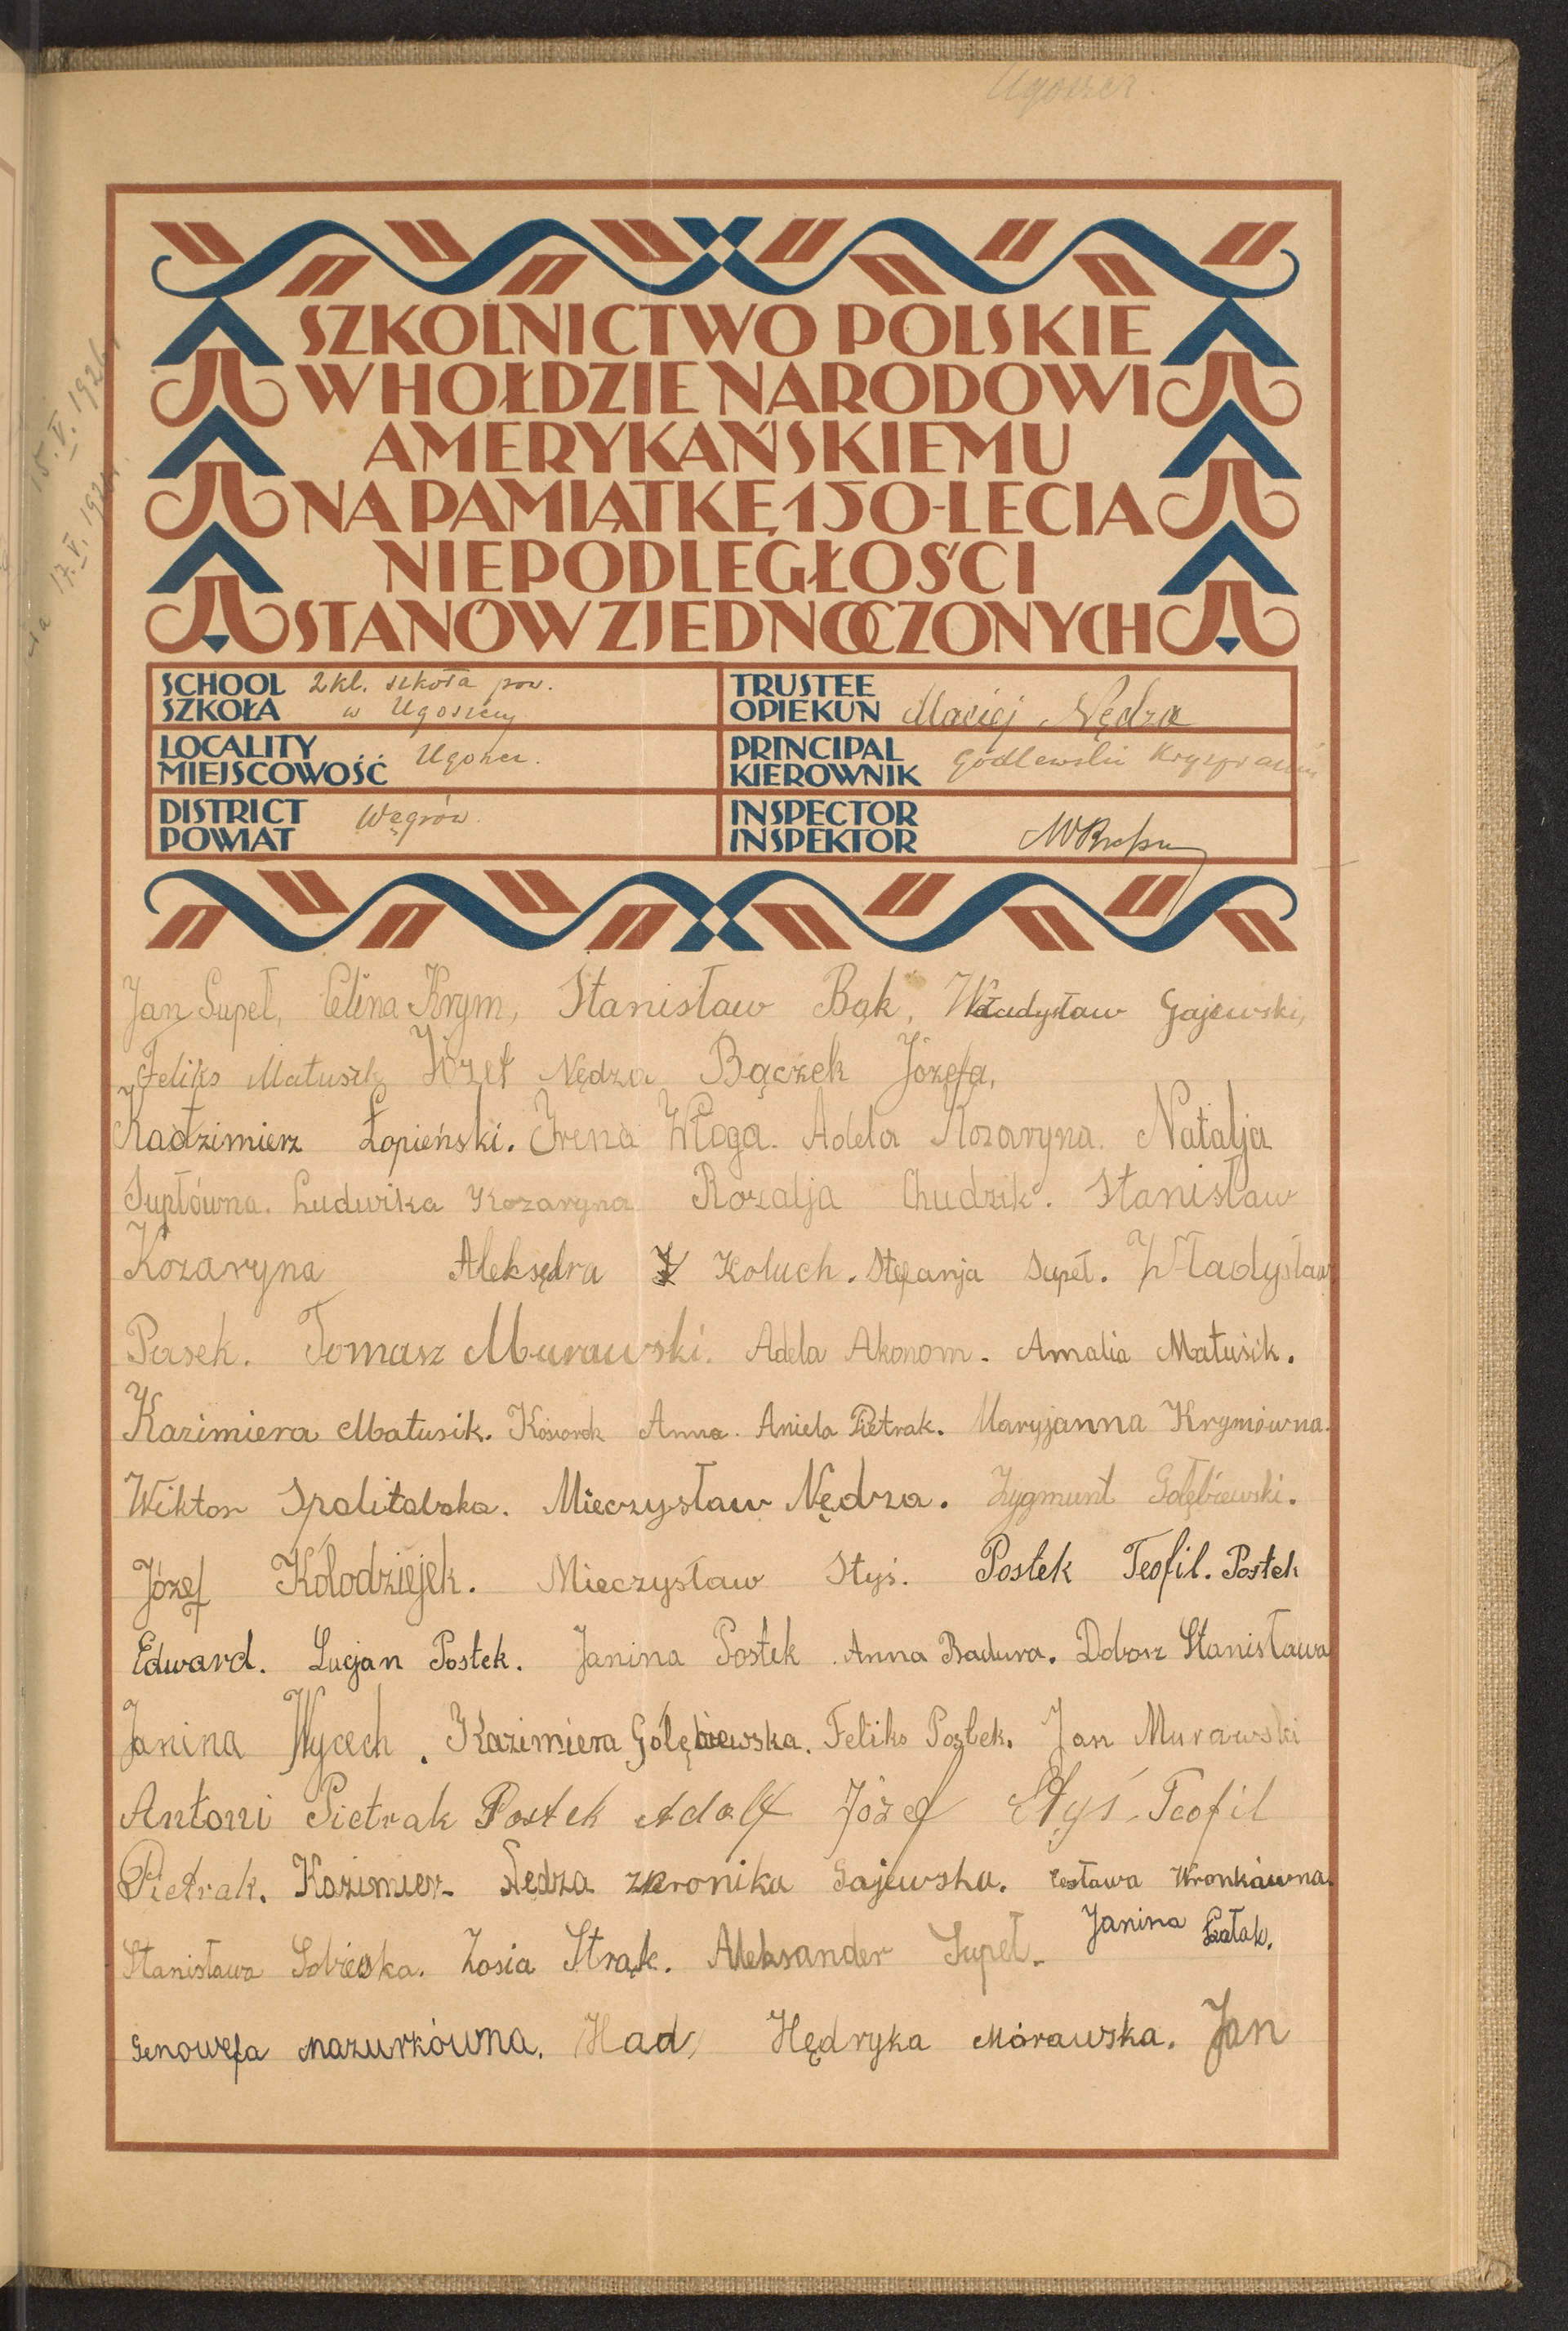 Ugoszcz.
15.V.1926
17.V.192
SZKOLNICTWO POLSKIE
W HOŁDZIE NARODOWI
AMERYKAŃSKIEMU
NA PAMIĄTKĘ 150-LECIA
NIEPODLEGŁOŚCI
STANÓW ZJEDNOCZONYCH
SCHOOL 2kl. szkoła pow.
SZKOŁA w Ugoszczy
TRUSTEE
OPIEKUN Maciej Nędza
LOCALITY
MIEJSCOWOŚĆ Ugoszcz.
PRINCIPAL
KIEROWNIK Godlewski
DISTRICT
POWIAT Węgrów.
INSPECTOR
INSPEKTOR
Jan Supeł, Celina Krym, Stanisław Bąk, Władysław Gajewski,
Feliks Matusik Józef Nędza Bączek Józefa,
Kadzimierz Łopieński. Irena Włoga. Adela Kozaryna. Natalja
Supłówna. Ludwika Kozaryna Rozalja Chudzik. Stanisław
Kozaryna Aleksędra Koluch. Stefanja Supeł. Władysław
Pasek. Tomasz Murawski. Adela Akonom. Amalia Matusik.
Kazimiera Matusik. Kosiorek Anna. Aniela Pietrak. Maryjanna Krymówna.
Wiktor Mieczysław Nędza. Zygmunt Gołębiewski.
Józef Kołodziejek. Mieczysław Styś. Postek Teofil. Postek
Edward. Lucjan Postek. Janina Postek. Anna Badura. Dobosz Stanisława
Janina Wycech. Kazimiera Gólębiewska. Feliks Postek. Jan Murawski
Antoni Pietrak Postek Adolf Józef Styś. Teofil
Pietrak. Kazimier Nędza Gajewska. Wronkówna.
Stanisława Sobieska. Zosia Strąk. Aleksander Supeł. Janina
Genowefa Mazurkówna. Had Hędryka Mórawska. Jan